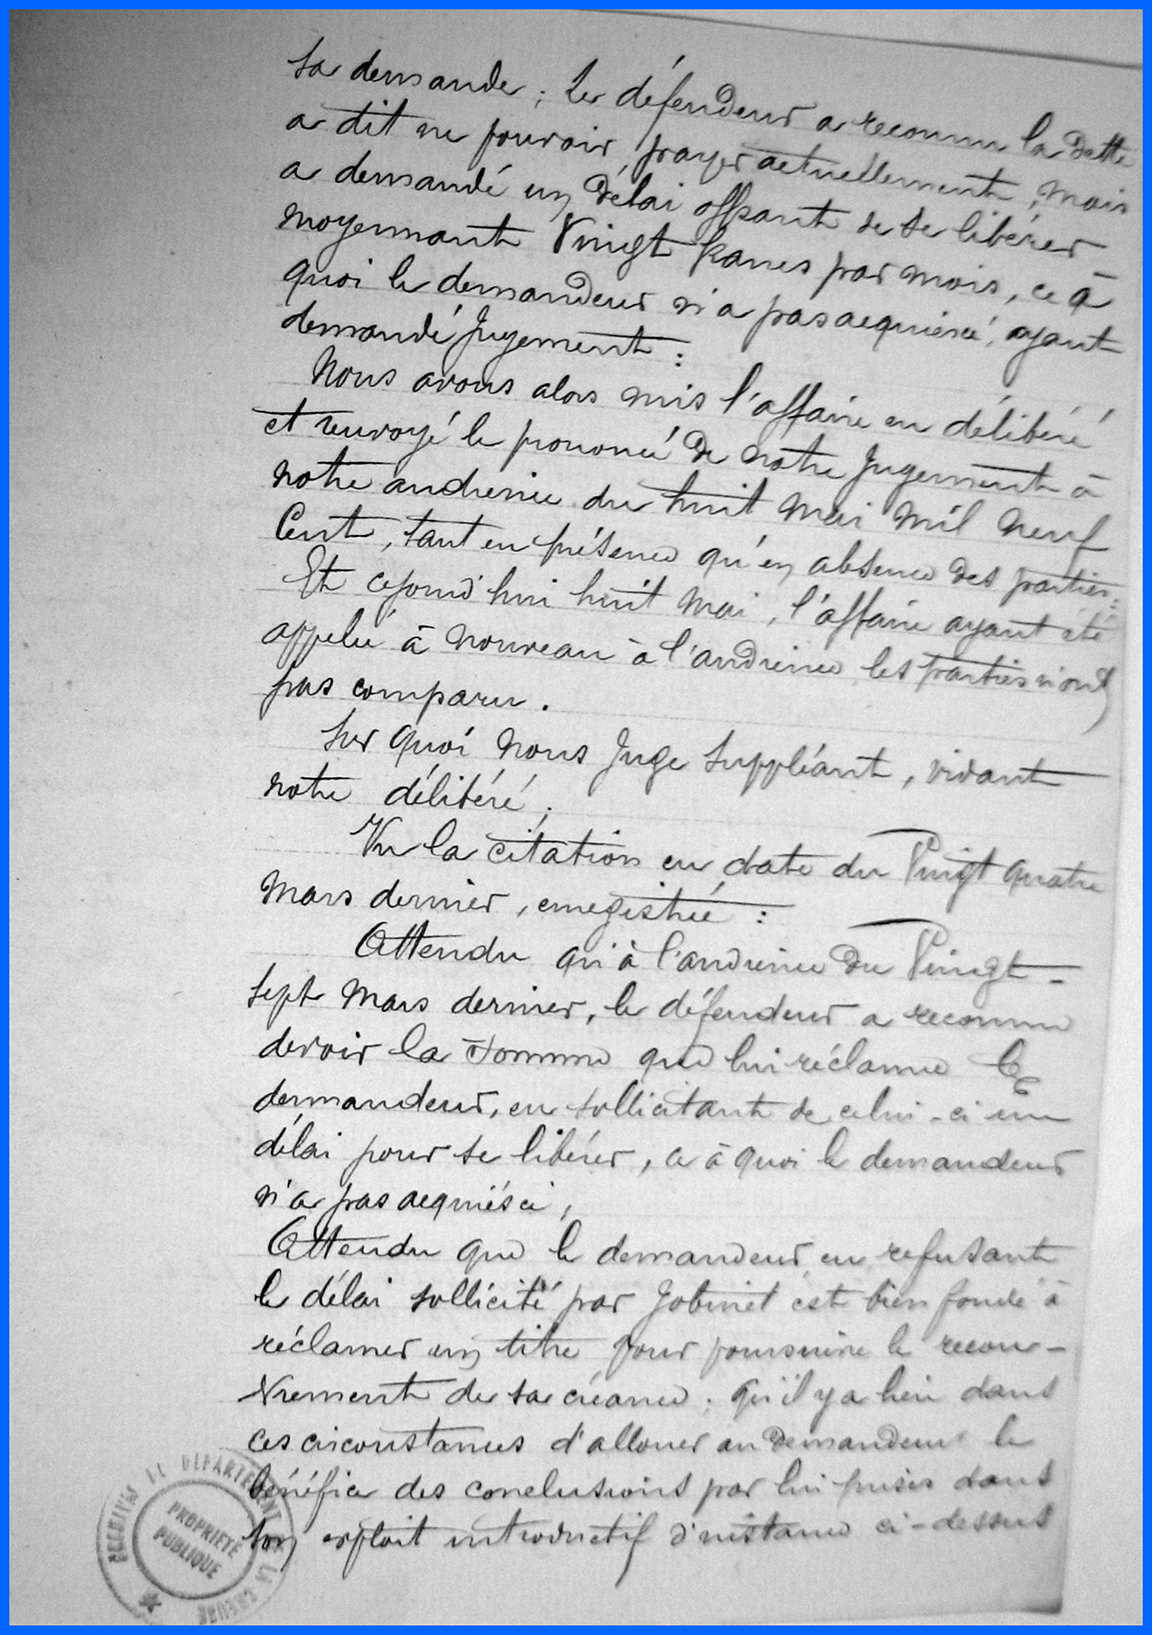 sa demande ; Le défendeur a reconnu la dette
a dit ne pouvoir payer actuellement, mais
a demandé un délai offrant de se libérer
moyennant Vingt francs par mois, ce à
quoi le demandeur n'a pas acquiescé, ayant
demandé Jugement :
Nous avons alors mis l'affaire en délibéré
et renvoyé le prononcé de notre Jugement à
notre audience du huit Mai Mil Neuf
Cent, tant en présence qu'en absence des parties :
Et cejourd'hui huit Mai, l'affaire ayant été
appelée à nouveau à l'audience les parties n'ont
pas comparu.
Sur quoi Nous Juge Suppléant, vidant
notre délibéré ;
Vu la citation en date du Vingt quatre
Mars dernier, enregistrée :
Attendu qu'à l'audience du Vingt-
sept Mars dernier, le défendeur a reconnu
devoir la somme que lui réclame le
demandeur, en sollicitant de celui-ci un
délai pour se libérer, ce à quoi le demandeur
n'a pas acquiescé,
Attendu que le demandeur en refusant
le délai sollicité par Jobinet est bien fondé à
réclamer un titre pour poursuivre le recou-
vrement de sa créance ; qu'il y a lieu dans
ces circonstances d'allouer au demandeur le
bénéfice des conclusions par lui prises dans
son exploit introductif d'instance ci-dessus
ARCHIVES DU DÉPARTEMENT DE LA CREUSE
PROPRIÉTÉ
PUBLIQUE